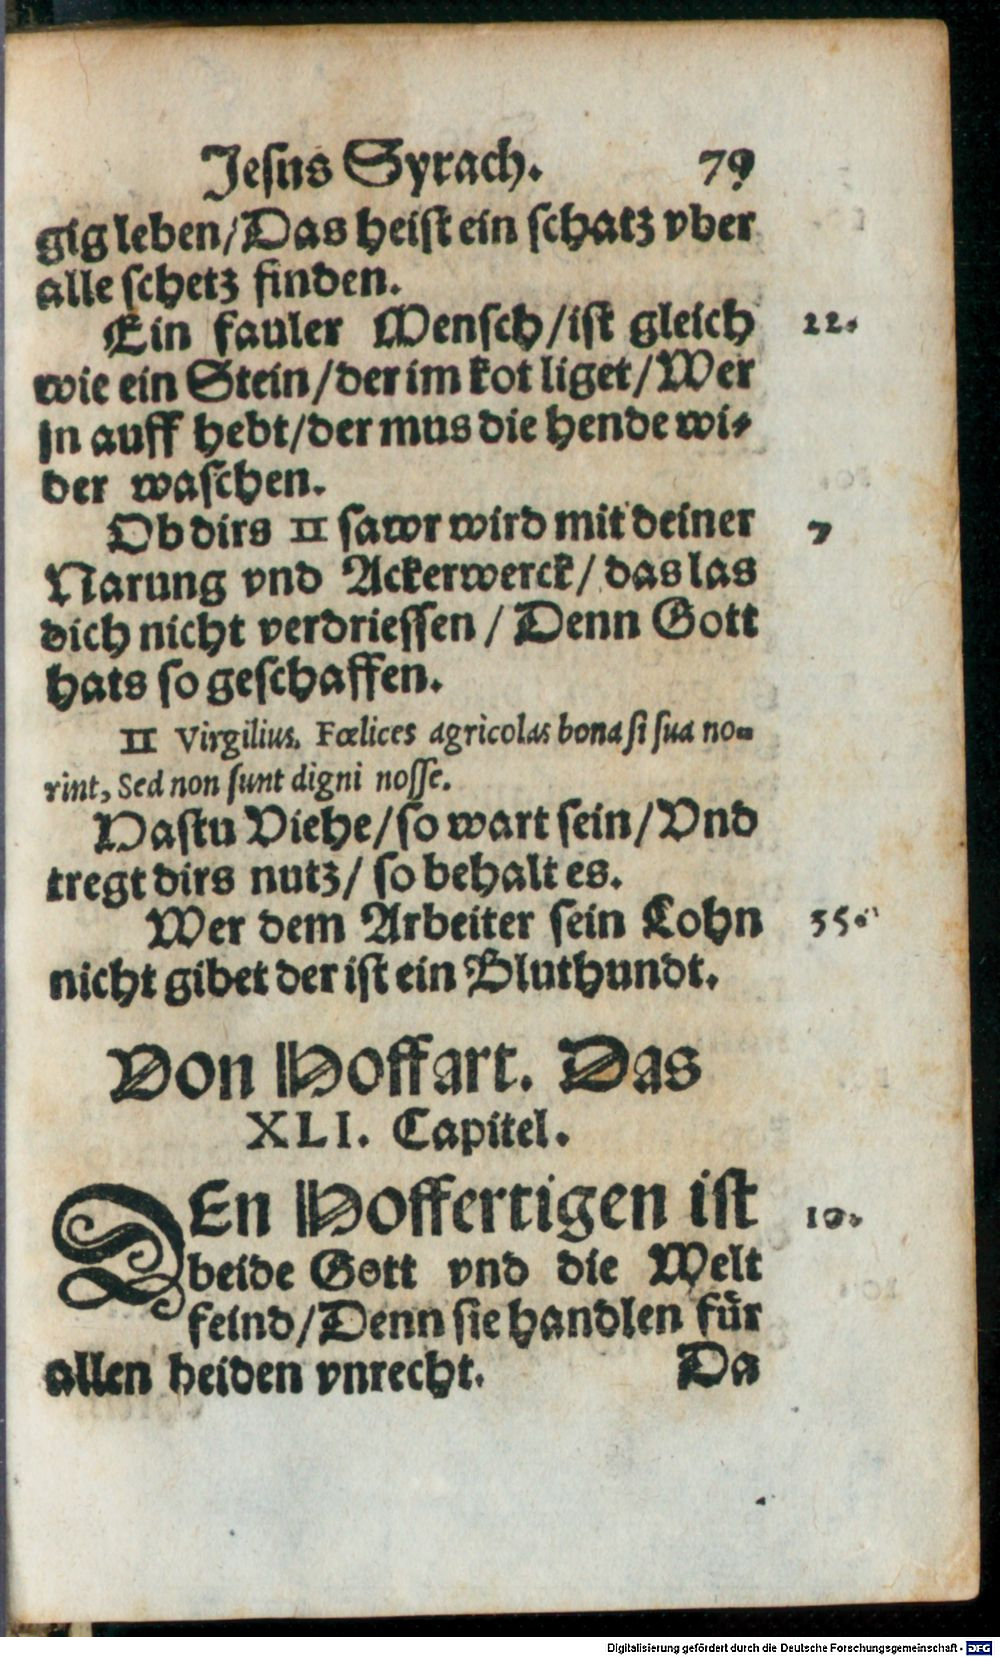 Jesus Syrach. 79
gig leben/Das heist ein schatz vber
alle schetz finden.
Ein fauler Mensch/ist gleich 22.
wie ein Stein/der im kot liget/Wer
jn auff hebt/der mus die hende wi-
der waschen.
Ob dirs II sawr wird mit deiner 7
Narung vnd Ackerwerck/das las
dich nicht verdriessen/Denn Gott
hats so geschaffen.
II Virgilius. Fœlices agricolas bona si sua no-
rint, Sed non sunt digni nosse.
Hastu Viehe/so wart sein/Vnd
tregt dirs nutz/so behalt es.
Wer dem Arbeiter sein Lohn 35.
nicht gibet der ist ein Bluthundt.
Von Hoffart. Das
XLI. Capitel.
DEn Hoffertigen ist 10.
beide Gott vnd die Welt
feind/Denn sie handlen für
allen beiden vnrecht. Da
Digitalisierung gefördert durch die Deutsche Forschungsgemeinschaft - DFG